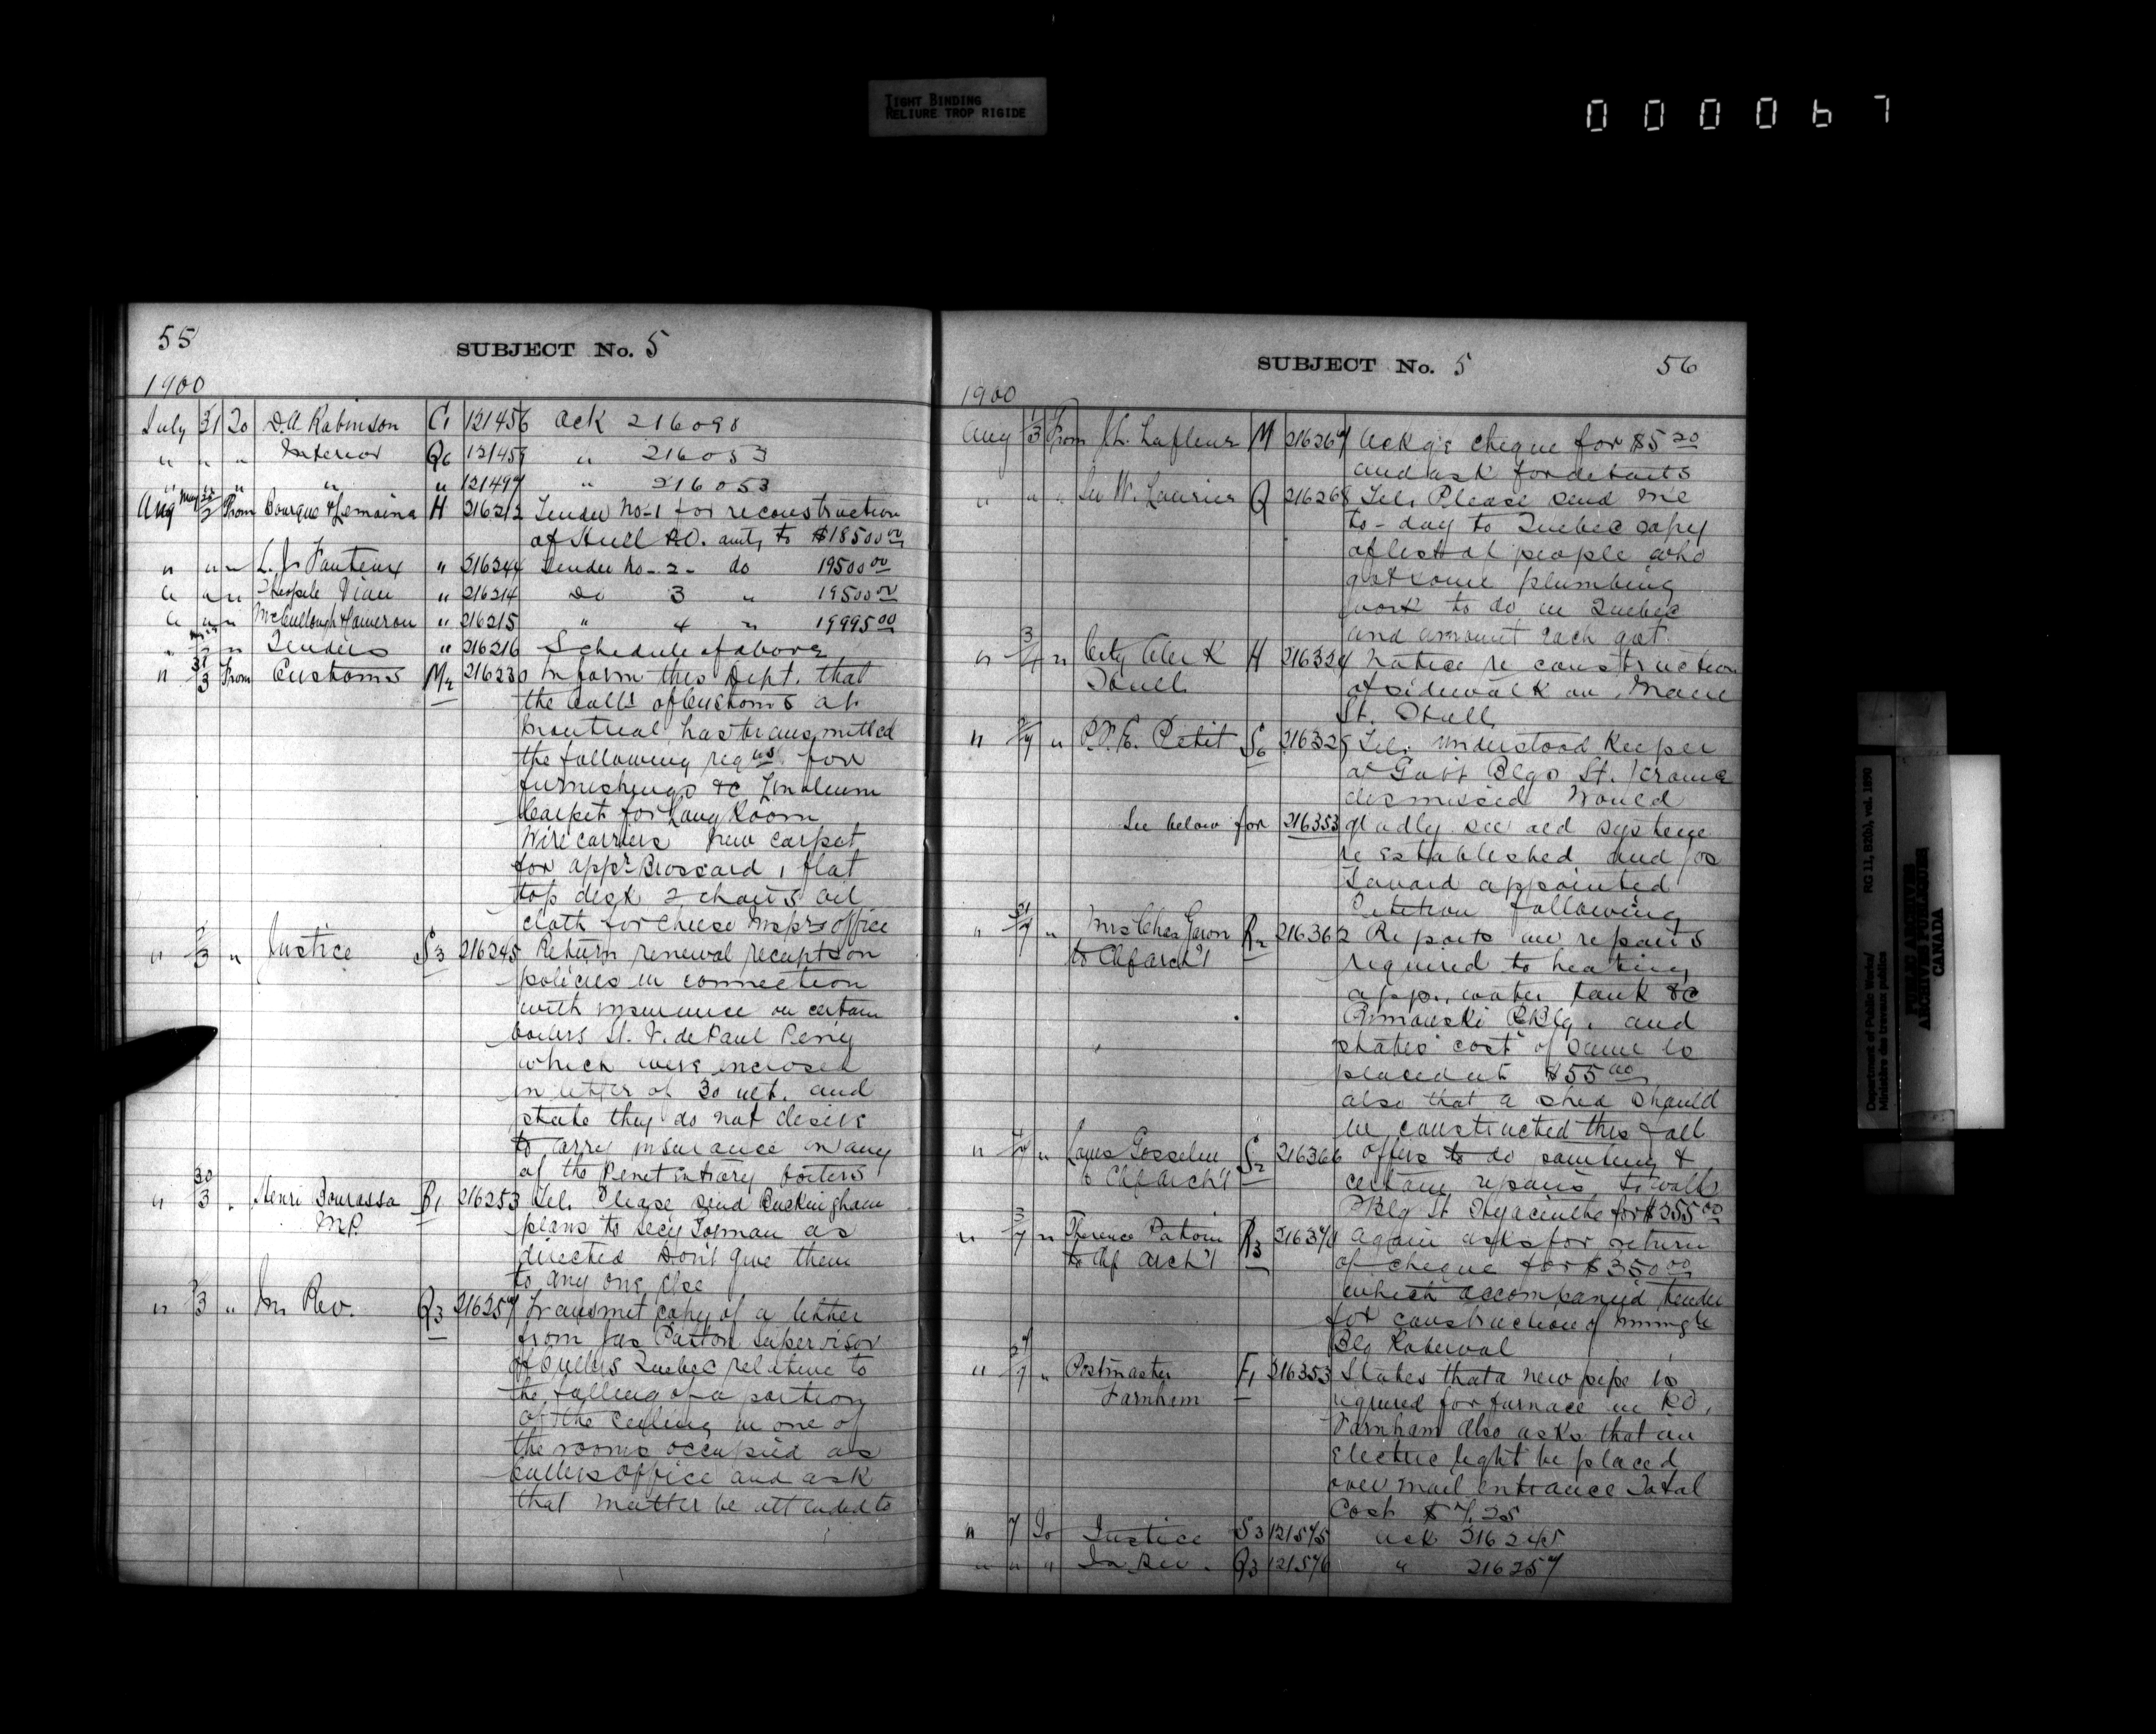 TIGHT BINDING
RELIURE TROP RIGIDE
000067
55
SUBJECT No. 5
1900
July 31 To D.A. Robinson C1 121456 Ack 216098
" " " Interior Q6 " 216053
" " " " " 121497 " 216053
Aug From Bourque & Lemoine H 216212 Tender No-1 for reconstruction
of Hull P.O. amtg to $18500 00
" " " L. J. Fauteux " Tender No-2- do 19500 00
" " " Viau " 216214 Do 3 " 19500 00
" " " McCullough & Cameron " 216215 " 4 " 19995 00
" " " Tenders " 216216 Schedule of above
" 31/3 From Customs 216230 Inform this Dept. that
the Collr of Customs at
Montreal has transmitted
the following reqns for
furnishings &c Linoleum
Carpet for Long Room
Wire carriers new carpet
for appr Brossard 1 flat
top desk 2 chairs oil
cloth for Cheese Inspr's office
" " Justice S3 216245 Return renewal receipts on
policies in connection
with insurance on certain
boilers St. V. de Paul Peny
which were enclosed
in letter of 30 ult. and
state they do not desire
to carry insurance on any
of the Penetintiary boilers
" 30/3 " Henri Bourassa
M.P. 216253 Tel. Please send Buckingham
plans to Secy as
directed Don't give them
to any one else
" " In Rev. Q3 216257 Transmit copy of a letter
from Jas Patton Supervisor
of Cullers Quebec relative to
the falling of a portion
of the ceiling in one of
the rooms occupied as
Cullers Office and ask
that matter be attended to
SUBJECT No. 5 56
1900
Aug 1/3 From Lafleur M 216267 Ackgs cheque for $5 20
and ask for details
" " " Sir W. Laurier Q 216268 Tel. Please send me
to-day to Quebec copy
of list of people who
got some plumbing
work to do in Quebec
and amount each got.
" 3/4 " City Clerk
Hull H Notice re construction
of sidewalk on Main
St. Hull
" " Petit S6 Tel. Understood Keeper
of Govt Blgs St. Jerome
dismissed Would
See below for 216353 gladly see old system
re established and Jos
appointed
Petition following
" 31/7 " Chas Garon
to Chf Arch't R2 216362 Reports on repairs
required to heating
app., water tank &c
Rimouski PBlg. and
states cost of same is
placed at $55 00
also that a shed should
be constructed this fall
" " Louis Gosselin
to Chf Arch't S2 216366 Offers to do painting &
certain repairs to walls
PBlg St Hyacinthe for $355 00
" 3/7 "
to Chf Arch't R3 Again asks for return
of cheque for $350 00
which accompanied tender
for construction of
Blg Roberval
" 27/7 " Postmaster
Farnhem F1 216353 States that a new pipe is
required for furnace in P.O.
Farnham also asks that an
Electric light be placed
over mail entrance Total
Cost $7.25
" 7 To Justice S3 121575 Ack 216245
" " " In Rev. Q3 121576 " 216257
Department of Public Works/ RG 11, B2(b), vol. 1890
Ministère des travaux publics
PUBLIC ARCHIVES
ARCHIVES PUBLIQUES
CANADA